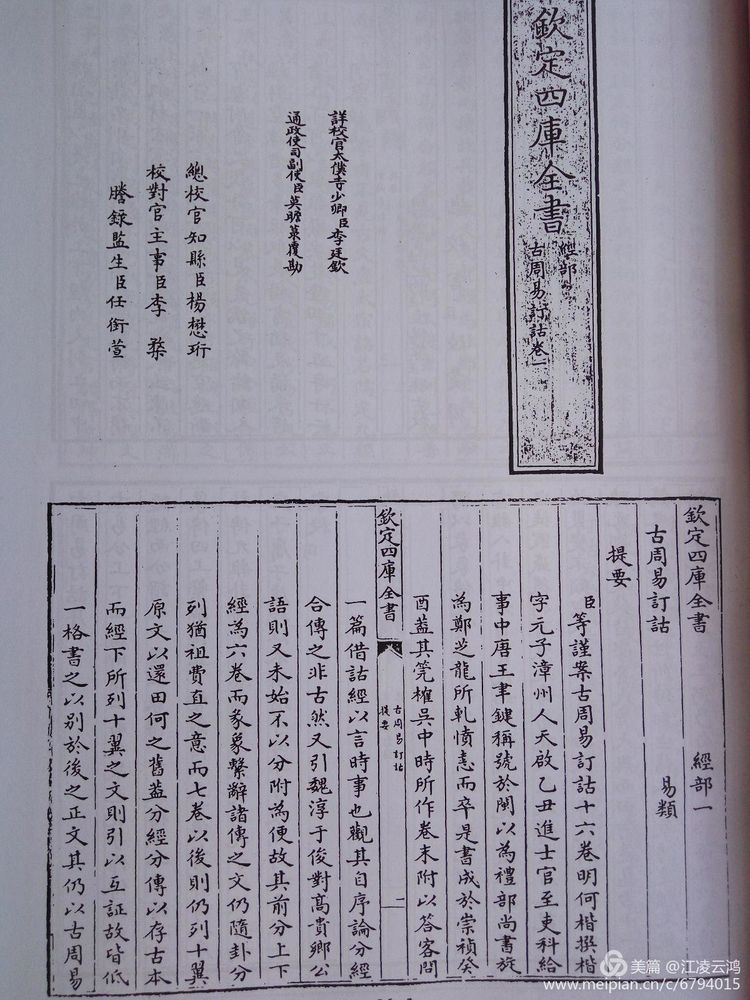 欽定四庫全書
經部
古周易訂詁卷一
詳校官太僕寺少卿臣李廷欽
通政使司副使臣莫瞻菉覆勘
總校官知縣臣楊懋珩
校對官主事臣李榘
謄錄監生臣任銜萱
欽定四庫全書 經部一
古周易訂詁 易類
提要
臣等謹案古周易訂詁十六卷明何楷撰楷
字元子漳州人天啟乙丑進士官至吏科給
事中唐王聿鍵稱號於閩以為禮部尚書旋
為鄭芝龍所軋憤恚而卒是書成於崇禎癸
酉蓋其筦榷吳中時所作卷末附以答客問
欽定四庫全書
古周易訂詁
提要
二
一篇借詁經以言時事也觀其自序論分經
合傳之非古然又引魏淳于俊對高貴鄉公
語則又未始不以分附為便故其前分上下
經為六卷而彖象繫辭諸傳之文仍隨卦分
列猶祖費直之意而七卷以後則仍列十翼
原文以還田何之舊蓋分經分傳以存古本
而經下所列十翼之文則引以互証故皆低
一格書之以別於後之正文其仍以古周易
美篇 @江凌云鸿
www.meipian.cn/c/6794015